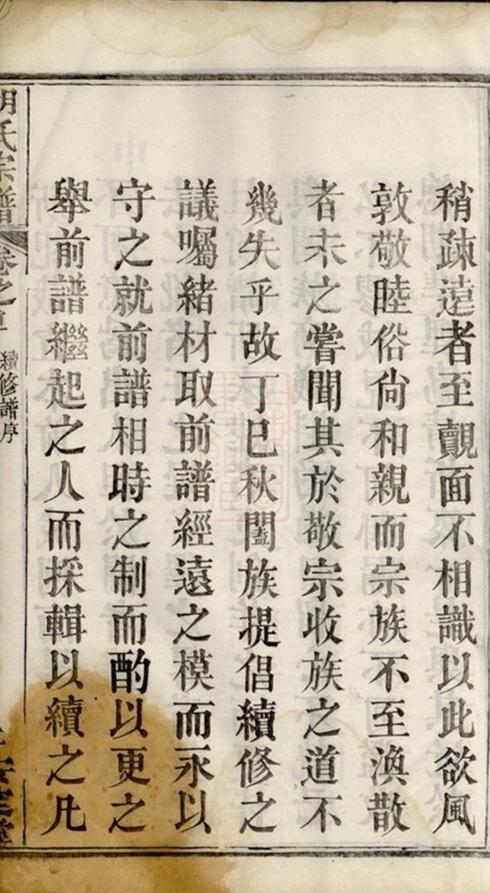 稍疎遠者至覿面不相識以此欲風
敦敬睦俗尙和親而宗族不至渙散
者未之嘗聞其於敬宗收族之道不
幾失乎故丁巳秋闔族提倡續修之
議囑緒材取前譜經遠之模而永以
守之就前譜相時之制而酌以更之
舉前譜繼起之人而採輯以續之凡
胡氏宗譜
卷之首
續修譜序